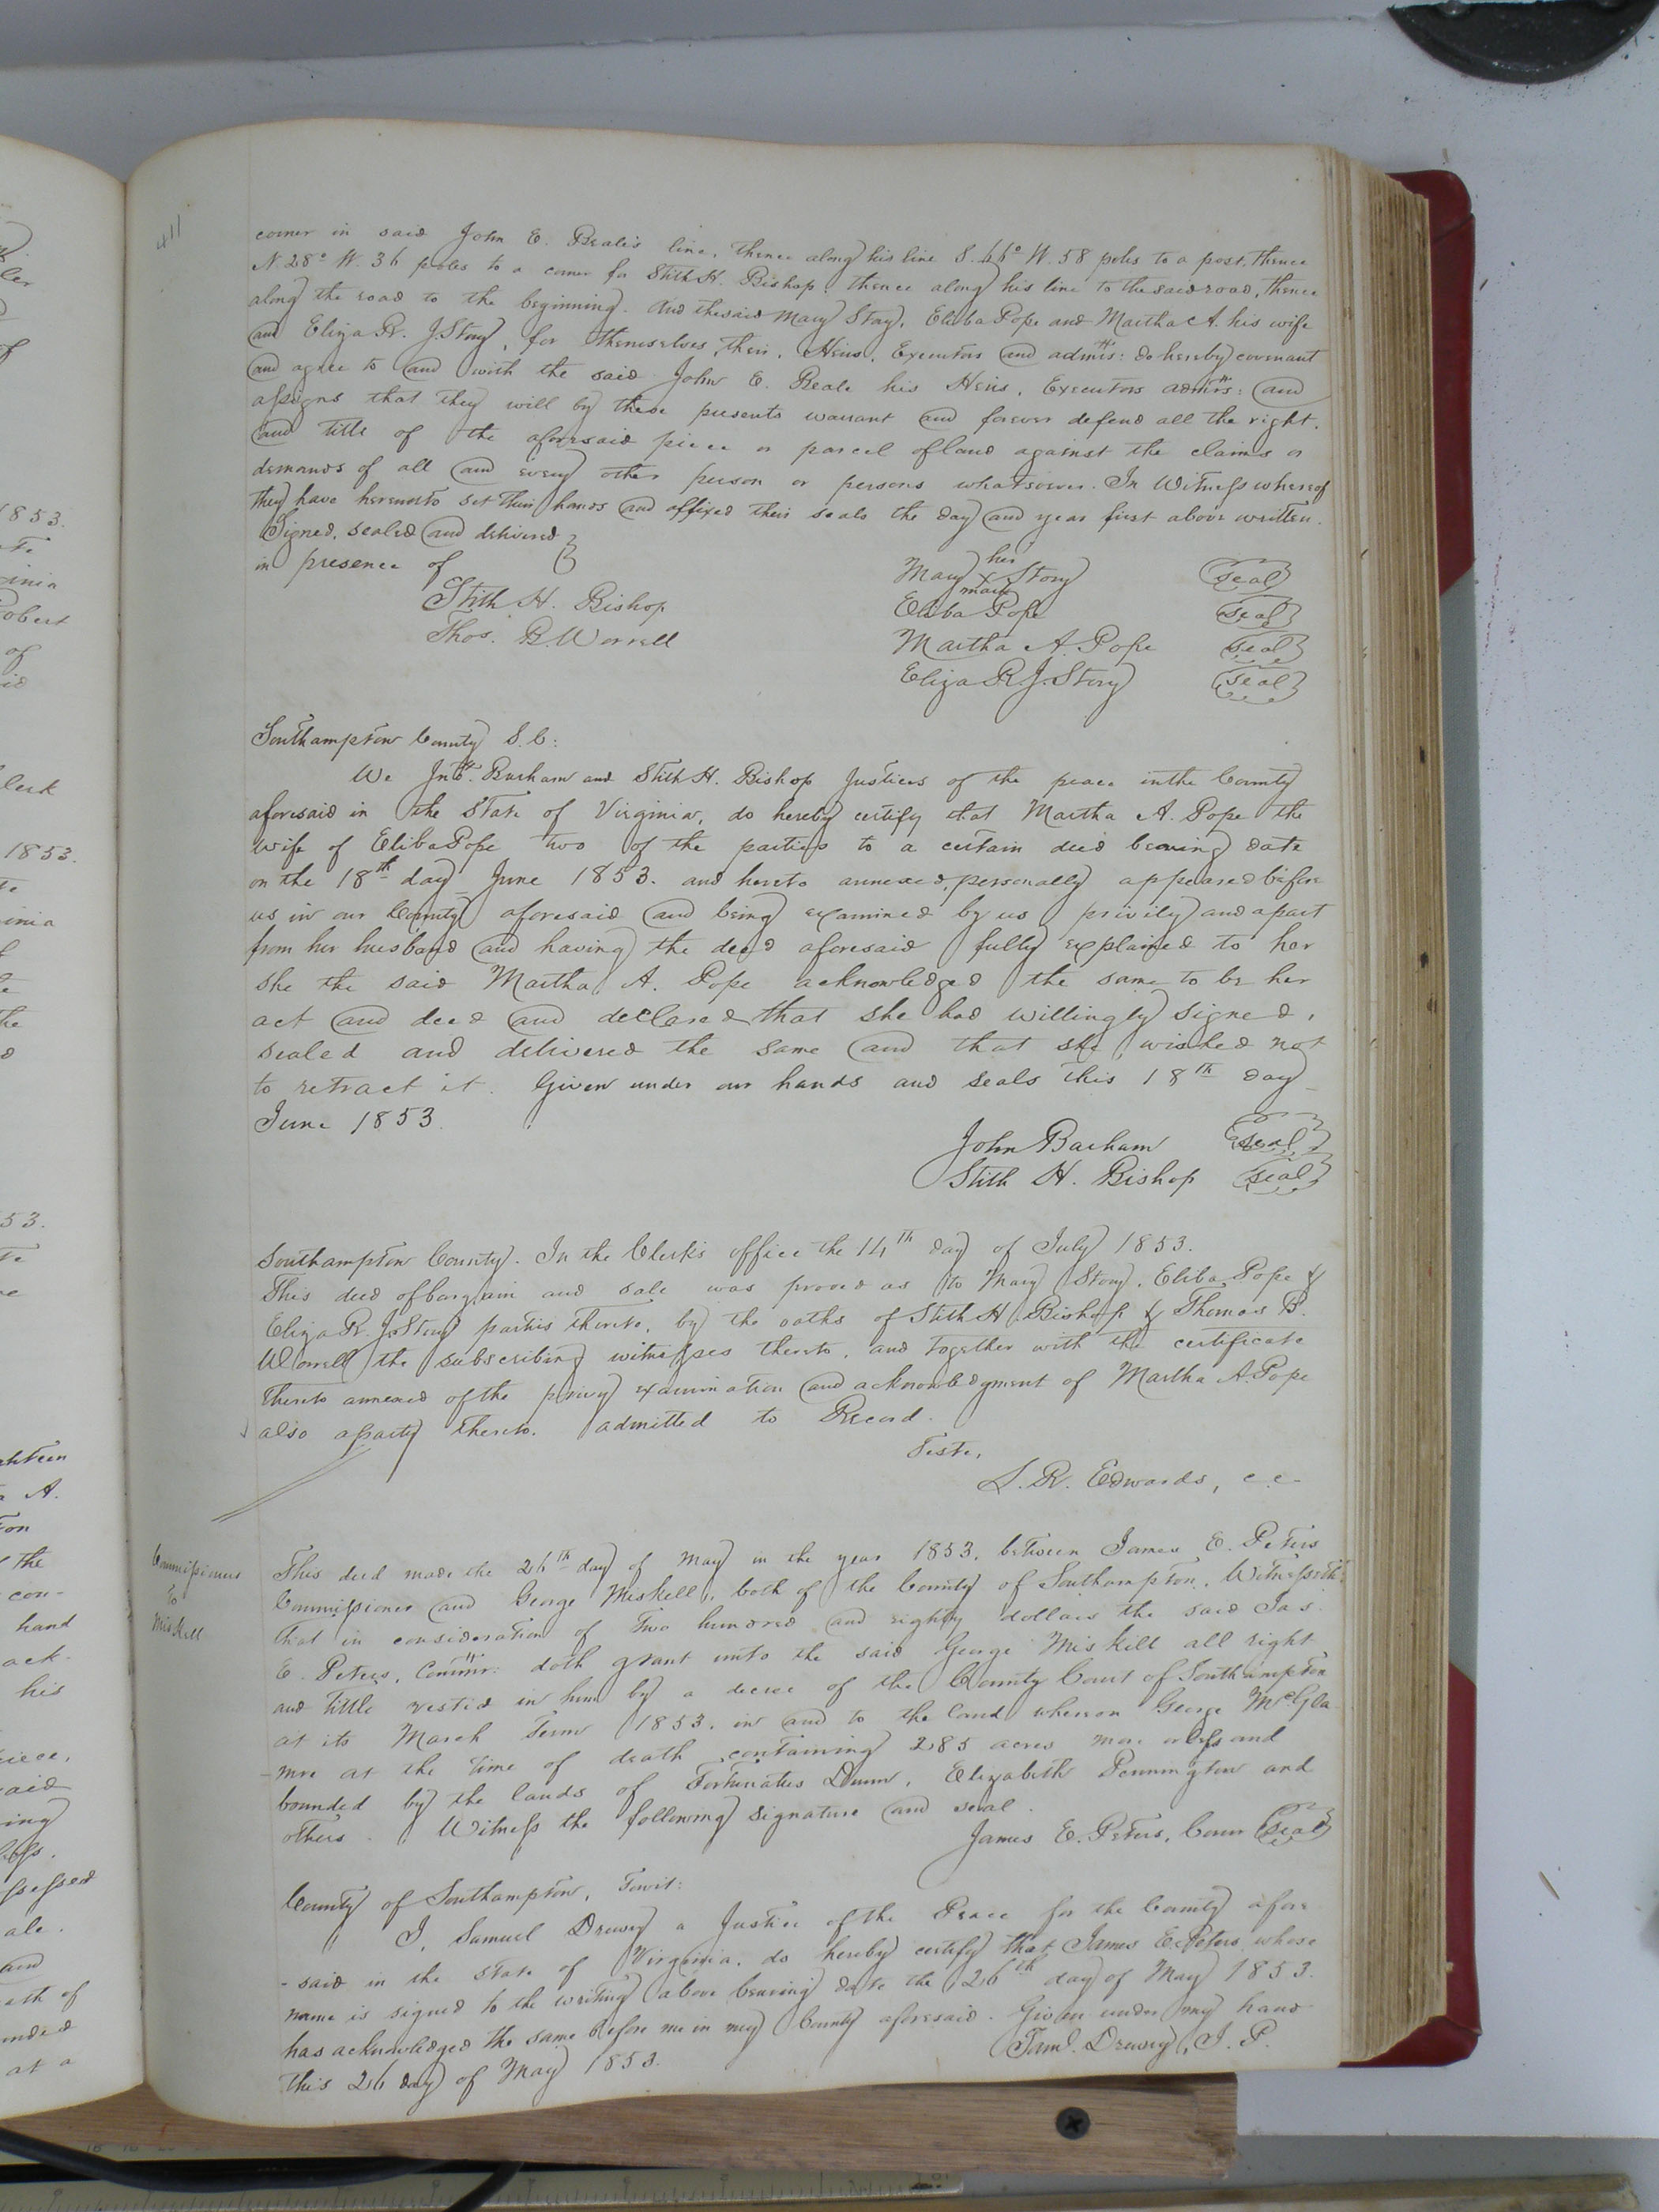 411
corner in said John E. Beale's line, thence along his line S. 66° W. 58 poles to a post, thence
N. 28° W. 36 poles to a corner for Stith H. Bishop, thence along his line to the said road, thence
along the road to the beginning. And the said Mary Story, Eliba Pope and Martha A. his wife
and Eliza R. J. Story, for themselves, their, Heirs, Executors and admrs: do hereby covenant
and agree to and with the said John E. Beale his Heirs, Executors admrs: and
assigns that they will by these presents warrant and forever defend all the right,
and title of the aforesaid piece or parcel of land against the claims or
demands of all and every other person or persons whatsoever. In Witness whereof
they have hereunto set their hands and affixed their seals the day and year first above written.
Signed, sealed and delivered }
in presence of
Stith H. Bishop
Thos. B. Worrell
her
Mary X Story (seal)
mark
Eliba Pope (seal)
Martha A. Pope (seal)
Eliza R. J. Story (seal)
Southampton County S.C:
We Jno. Barham and Stith H. Bishop Justices of the peace in the County
aforesaid in the State of Virginia, do hereby certify that Martha A. Pope the
wife of Eliba Pope two of the parties to a certain deed bearing date
on the 18th day June 1853. and hereto annexed, personally appeared before
us in our County aforesaid and being examined by us privily and apart
from her husband and having the deed aforesaid fully explained to her
she the said Martha A. Pope acknowledged the same to be her
act and deed and declared that she had willingly signed,
sealed and delivered the same and that she wished not
to retract it. Given under our hands and seals this 18th day
June 1853.
John Barham (seal)
Stith H. Bishop (seal)
Southampton County. In the Clerk's office the 14th day of July 1853.
This deed of bargain and sale was proved as to Mary Story, Eliba Pope &
Eliza R. J. Story parties thereto, by the oaths of Stith H. Bishop & Thomas B.
Worrell the subscribing witnesses thereto, and together with the certificate
thereto annexed of the privy examination and acknowledgment of Martha A. Pope
also a party thereto. admitted to Record.
Teste,
L. R. Edwards, c.c.
Commissioner
to
Miskell
This deed made the 26th day of May in the year 1853, between James E. Peters
Commissioner and George Miskell, both of the County of Southampton, Witnesseth:
that in consideration of Two hundred and eighty dollars the said Jas.
E. Peters, Commr: doth grant unto the said George Miskell all right
and tittle vested in him by a decree of the County Court of Southampton
at its March Term 1853, in and to the land whereon George McGla
-mre at the time of death containing 285 acres more or less and
bounded by the lands of Fortunatus Dunn, Elizabeth Pennington and
others. Witness the following signature and seal.
James E. Peters, Comr (seal)
County of Southampton, Towit:
I, Samuel Drewry a Justice of the Peace for the County afore
-said in the state of Virginia, do hereby certify that James E. Peters whose
name is signed to the writing above bearing date the 26th day of May 1853.
has acknowledged the same before me in my County aforesaid. Given under my hand
this 26 day of May 1853.
Saml. Drewry, J. P.